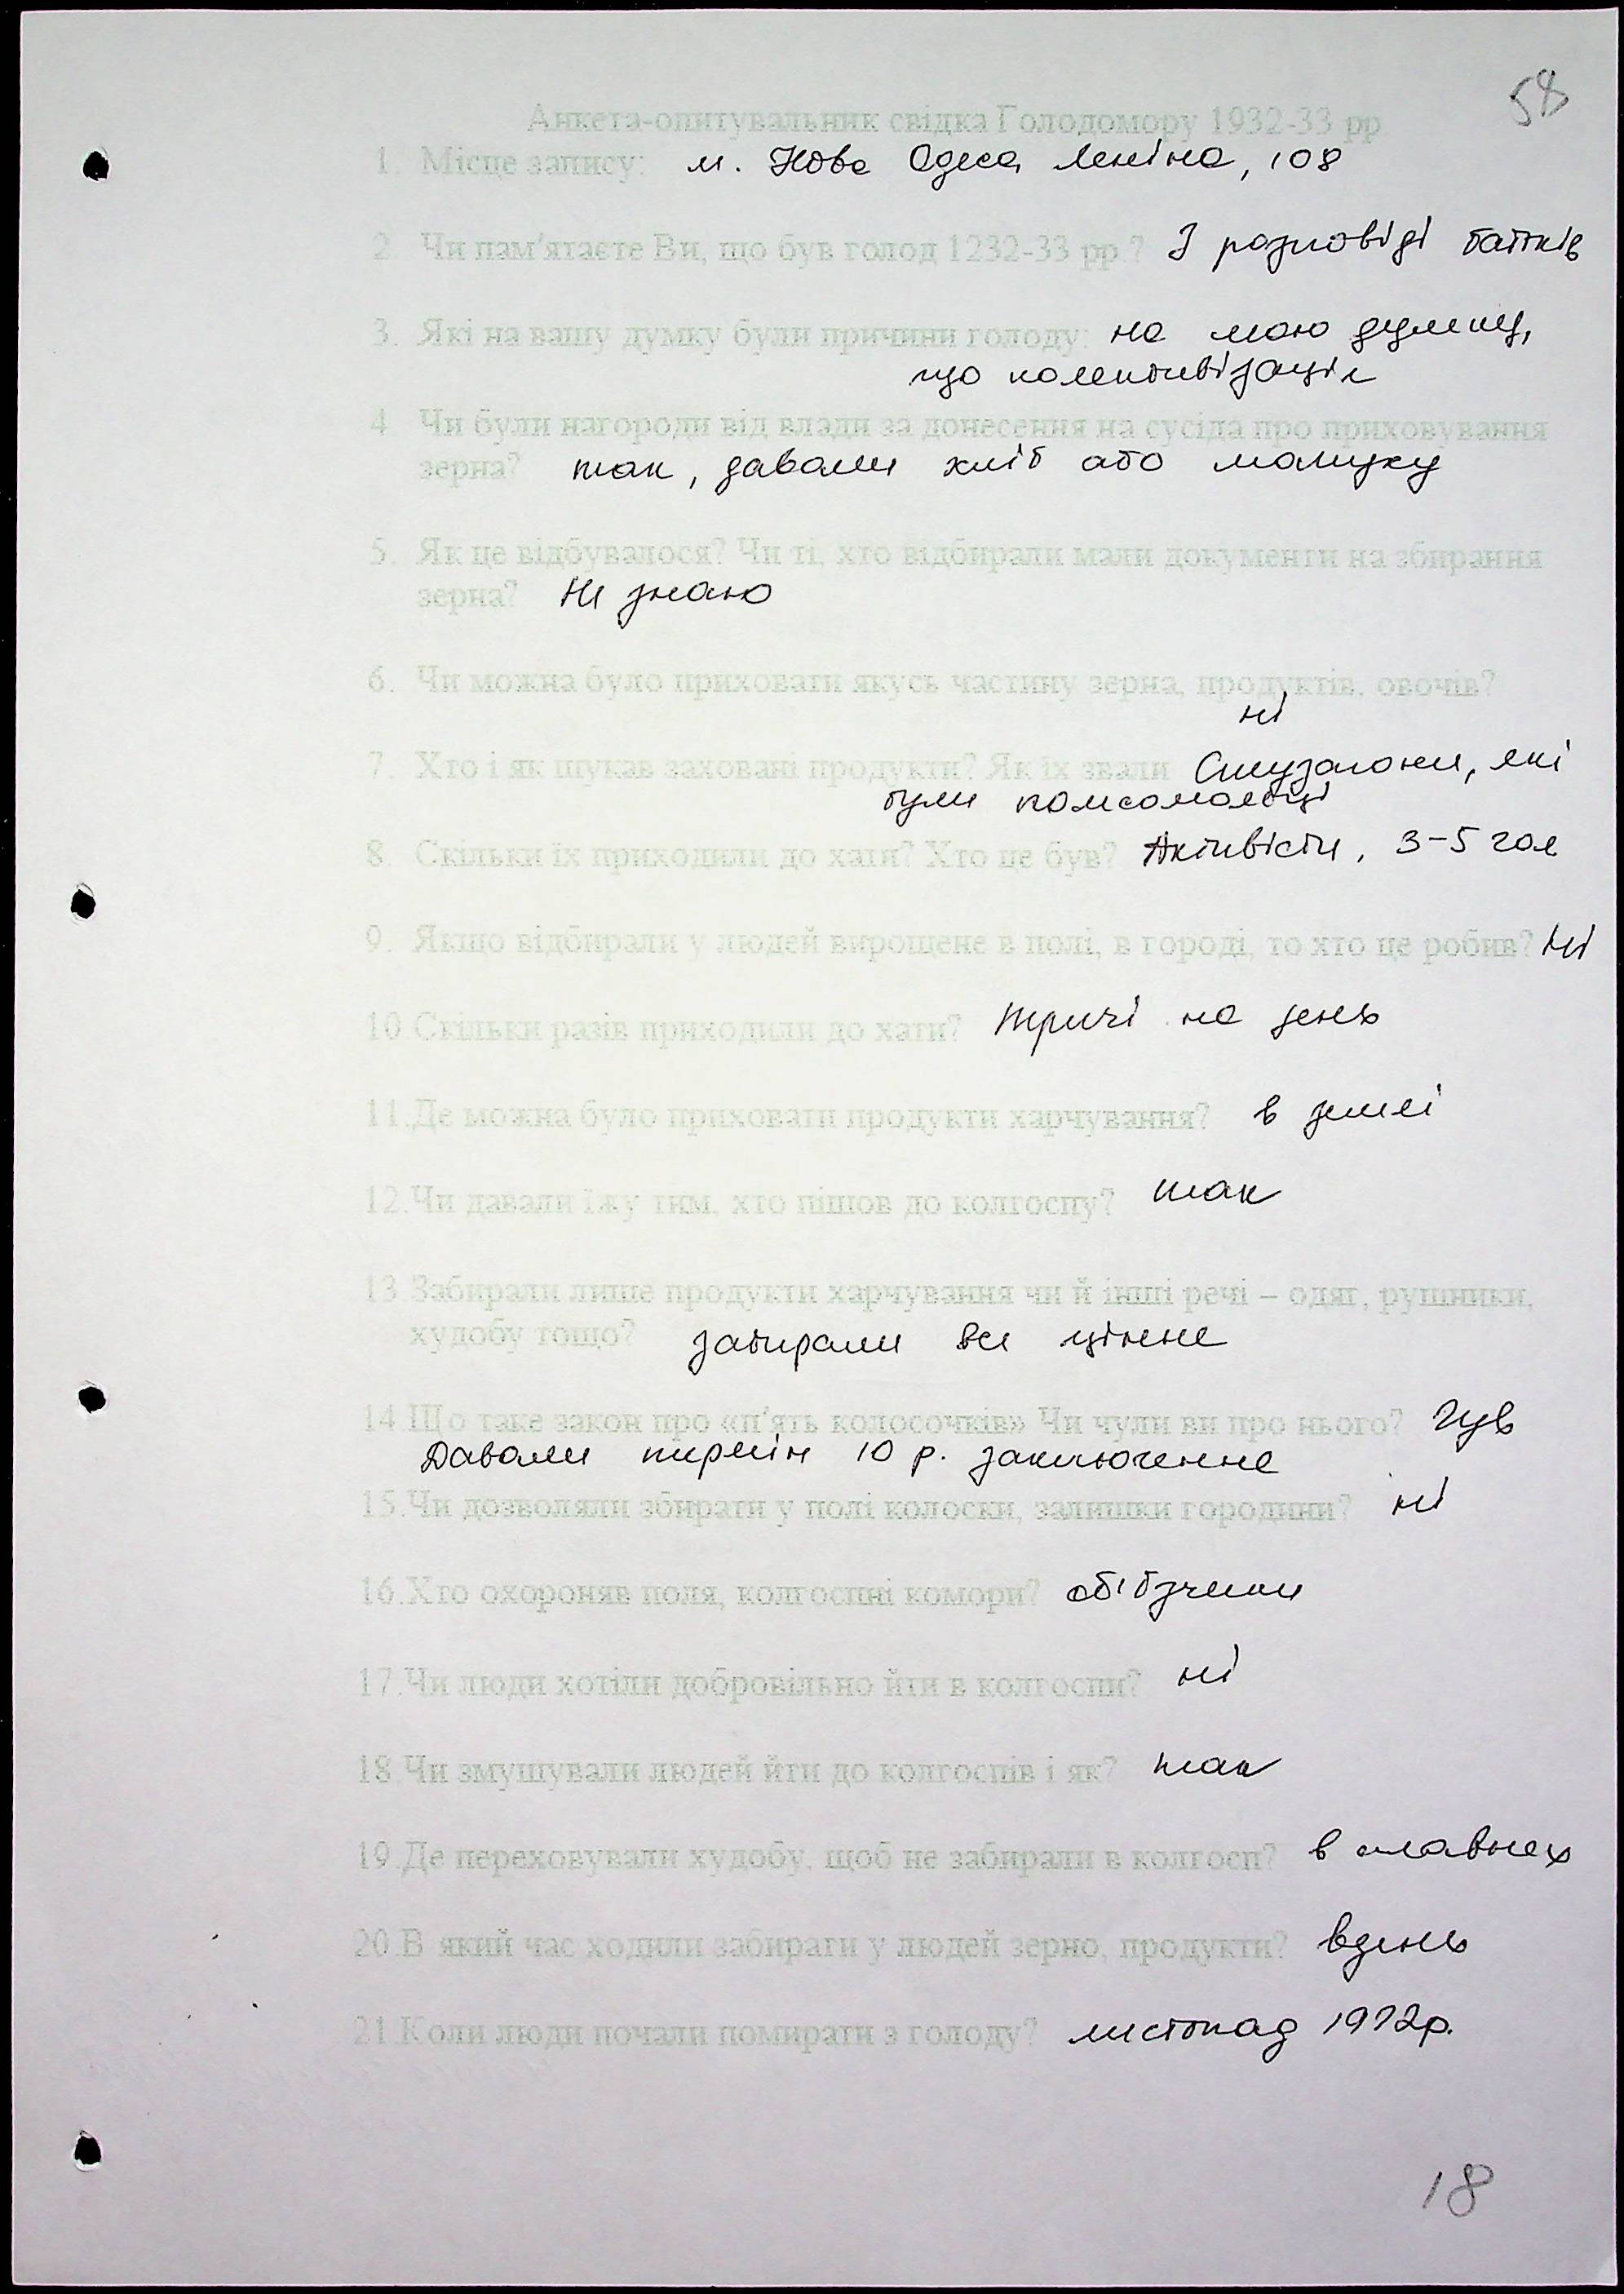 58
Анкета-опитувальник свідка Голодомору 1932-33 рр
1. Місце запису: м. Нова Одеса Леніна, 108
2. Чи пам'ятаєте Ви, що був голод 1232-33 рр.? З розповіді батків
3. Які на вашу думку були причини голоду: на мою думку,
що колективізація
4. Чи були нагороди від влади за донесення на сусіда про приховування
зерна? так, давали хліб або макуху
5. Як це відбувалося? Чи ті, хто відбирали мали документи на збирання
зерна? Не знаю
6. Чи можна було приховати якусь частину зерна, продуктів, овочів?
ні
7. Хто і як шукав заховані продукти? Як їх звали які
були комсомольці
8. Скільки їх приходили до хати? Хто це був? Активісти, 3-5 чол
9. Якщо відбирали у людей вирощене в полі, в городі, то хто це робив? Ні
10.Скільки разів приходили до хати? тричі на день
11.Де можна було приховати продукти харчування? в землі
12.Чи давали їжу тим, хто пішов до колгоспу? так
13.Забирали лише продукти харчування чи й інші речі – одяг, рушники,
худобу тощо? забирали все цінне
14.Що таке закон про «п'ять колосочків» Чи чули ви про нього? Чув
Давали термін 10 р. заключення
15.Чи дозволяли збирати у полі колоски, залишки городини? ні
16.Хто охороняв поля, колгоспні комори?
17.Чи люди хотіли добровільно йти в колгоспи? ні
18.Чи змушували людей йти до колгоспів і як? так
19.Де переховували худобу, щоб не забирали в колгосп? в плавнях
20.В який час ходили забирати у людей зерно, продукти? вдень
21.Коли люди почали помирати з голоду? листопад 1932р.
18